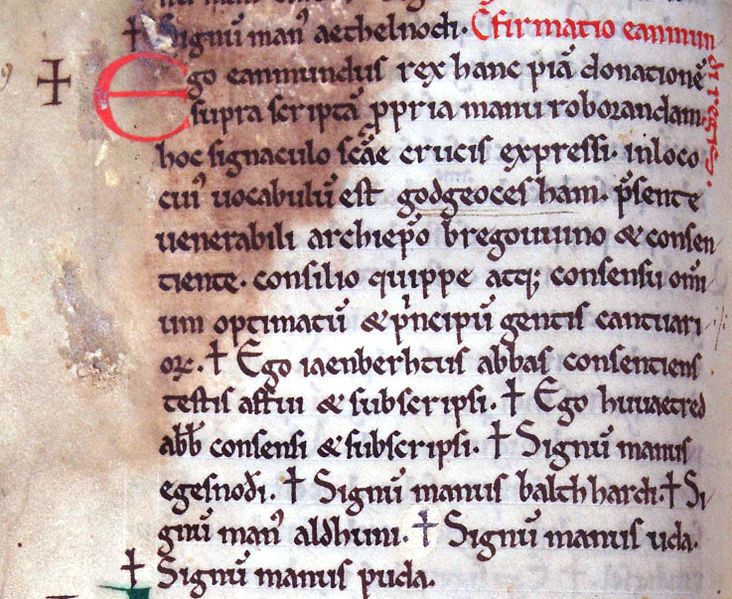 ✝ Signū man᾽ aethelnodi. Cfirmatio eanmun
di regis.
Ego eanmundus rex hanc piā donationē
supra scriptā ppria manu roborandam
hoc signaculo scāe crucis expressi. in loco
cui᾽ uocabulū est godgeoces ham. p̄sente
uenerabili archiep̄o breguuuino & consen
tiente. consilio quippe atq; consensu om̄i
um optimatū & pⁱncipū gentis cantuari
oꝝ. ✝ Ego iaenberhtus abbas consentiens
testis asttui & subscripsi. ✝ Ego huuaetred
abb̄ consensi & subscripsi. ✝ Signū manus
egesnodi. ✝ Signū manus balthhardi. ✝ Si
gnū man᾽ aldhuni. ✝ Signū manus uda.
✝ Signū manus puda.